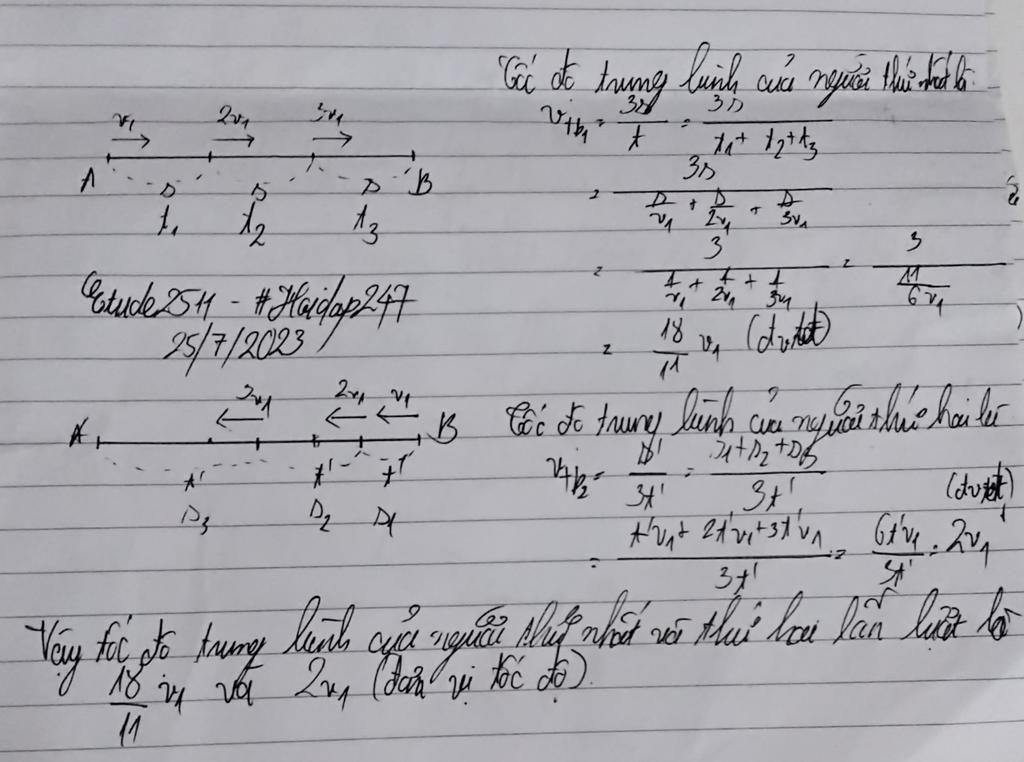 v₁ 2v₁ 3v₁
A s s s B
t₁ t₂ t₃
Etude2511 - #Hoidap247
25/7/2023
Tốc độ trung bình của người thứ nhất là
v_tb₁ = 3s/t = 3s/(t₁ + t₂ + t₃)
= 3s/(s/v₁ + s/2v₁ + s/3v₁)
= 3/(1/v₁ + 1/2v₁ + 1/3v₁) = 3/(11/6v₁)
= 18/11 v₁ (đv tốc độ)
3v₁ 2v₁ v₁
A B
t' t' t'
s₃ s₂ s₁
Tốc độ trung bình của người thứ hai là
v_tb₂ = s'/3t' = (s₁ + s₂ + s₃)/3t'
= (t'v₁ + 2t'v₁ + 3t'v₁)/3t' = 6t'v₁/3t' = 2v₁ (đv tốc độ)
Vậy tốc độ trung bình của người thứ nhất và thứ hai lần lượt là
18/11 v₁ và 2v₁ (đơn vị tốc độ).